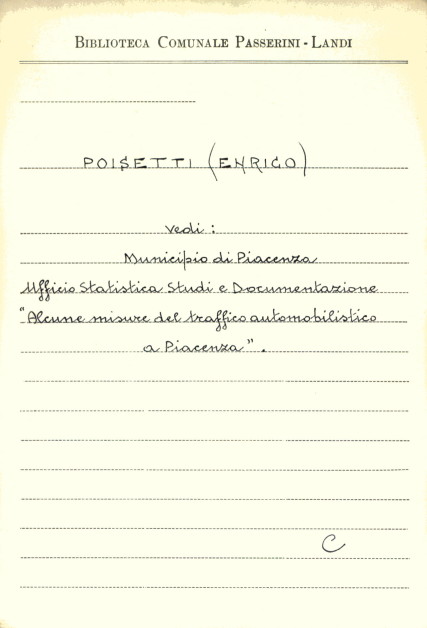 BIBLIOTECA COMUNALE PASSERINI-LANDI
POISETTI (ENRICO)
vedi:
Municipio di Piacenza
Ufficio Statistica Studi e Documentazione
"Alcune misure del traffico automobilistico
a Piacenza".
C